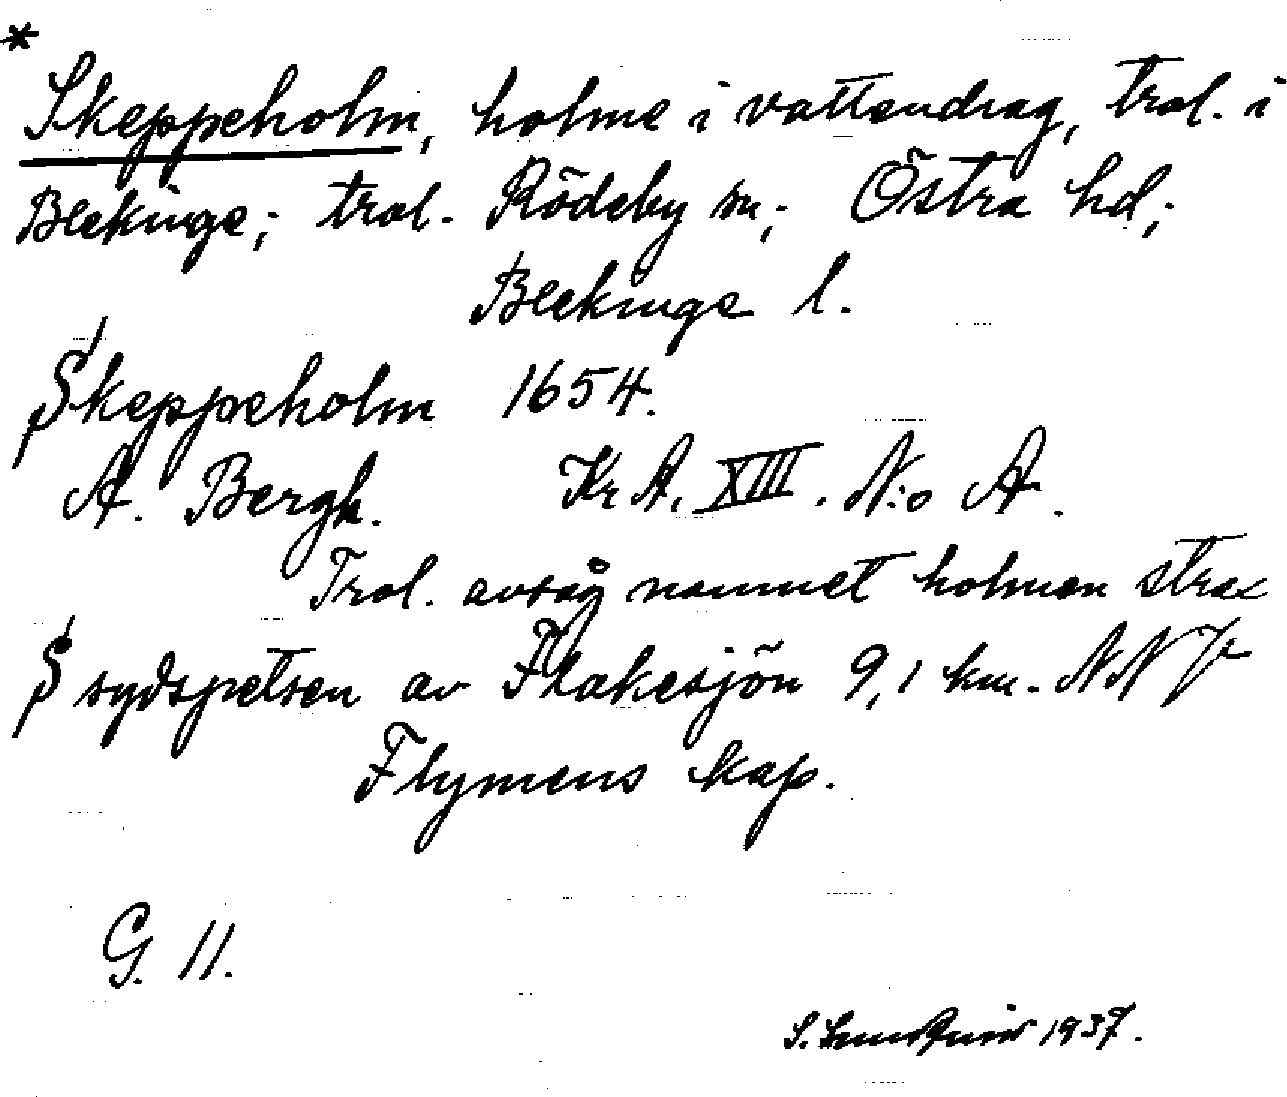 *
Skeppeholm, holme i vattendrag, trol. i
Blekinge; trol. Rödeby sn; Östra hd;
Blekinge l.
Skeppeholm 1654.
A. Bergh. Kr A. XIII. N:o A.
Trol. avsåg namnet holmen strax
S sydspetsen av Flakesjön 9,1 km. NNV
Flymens kap.
G. 11.
S. Lundquist 1937.